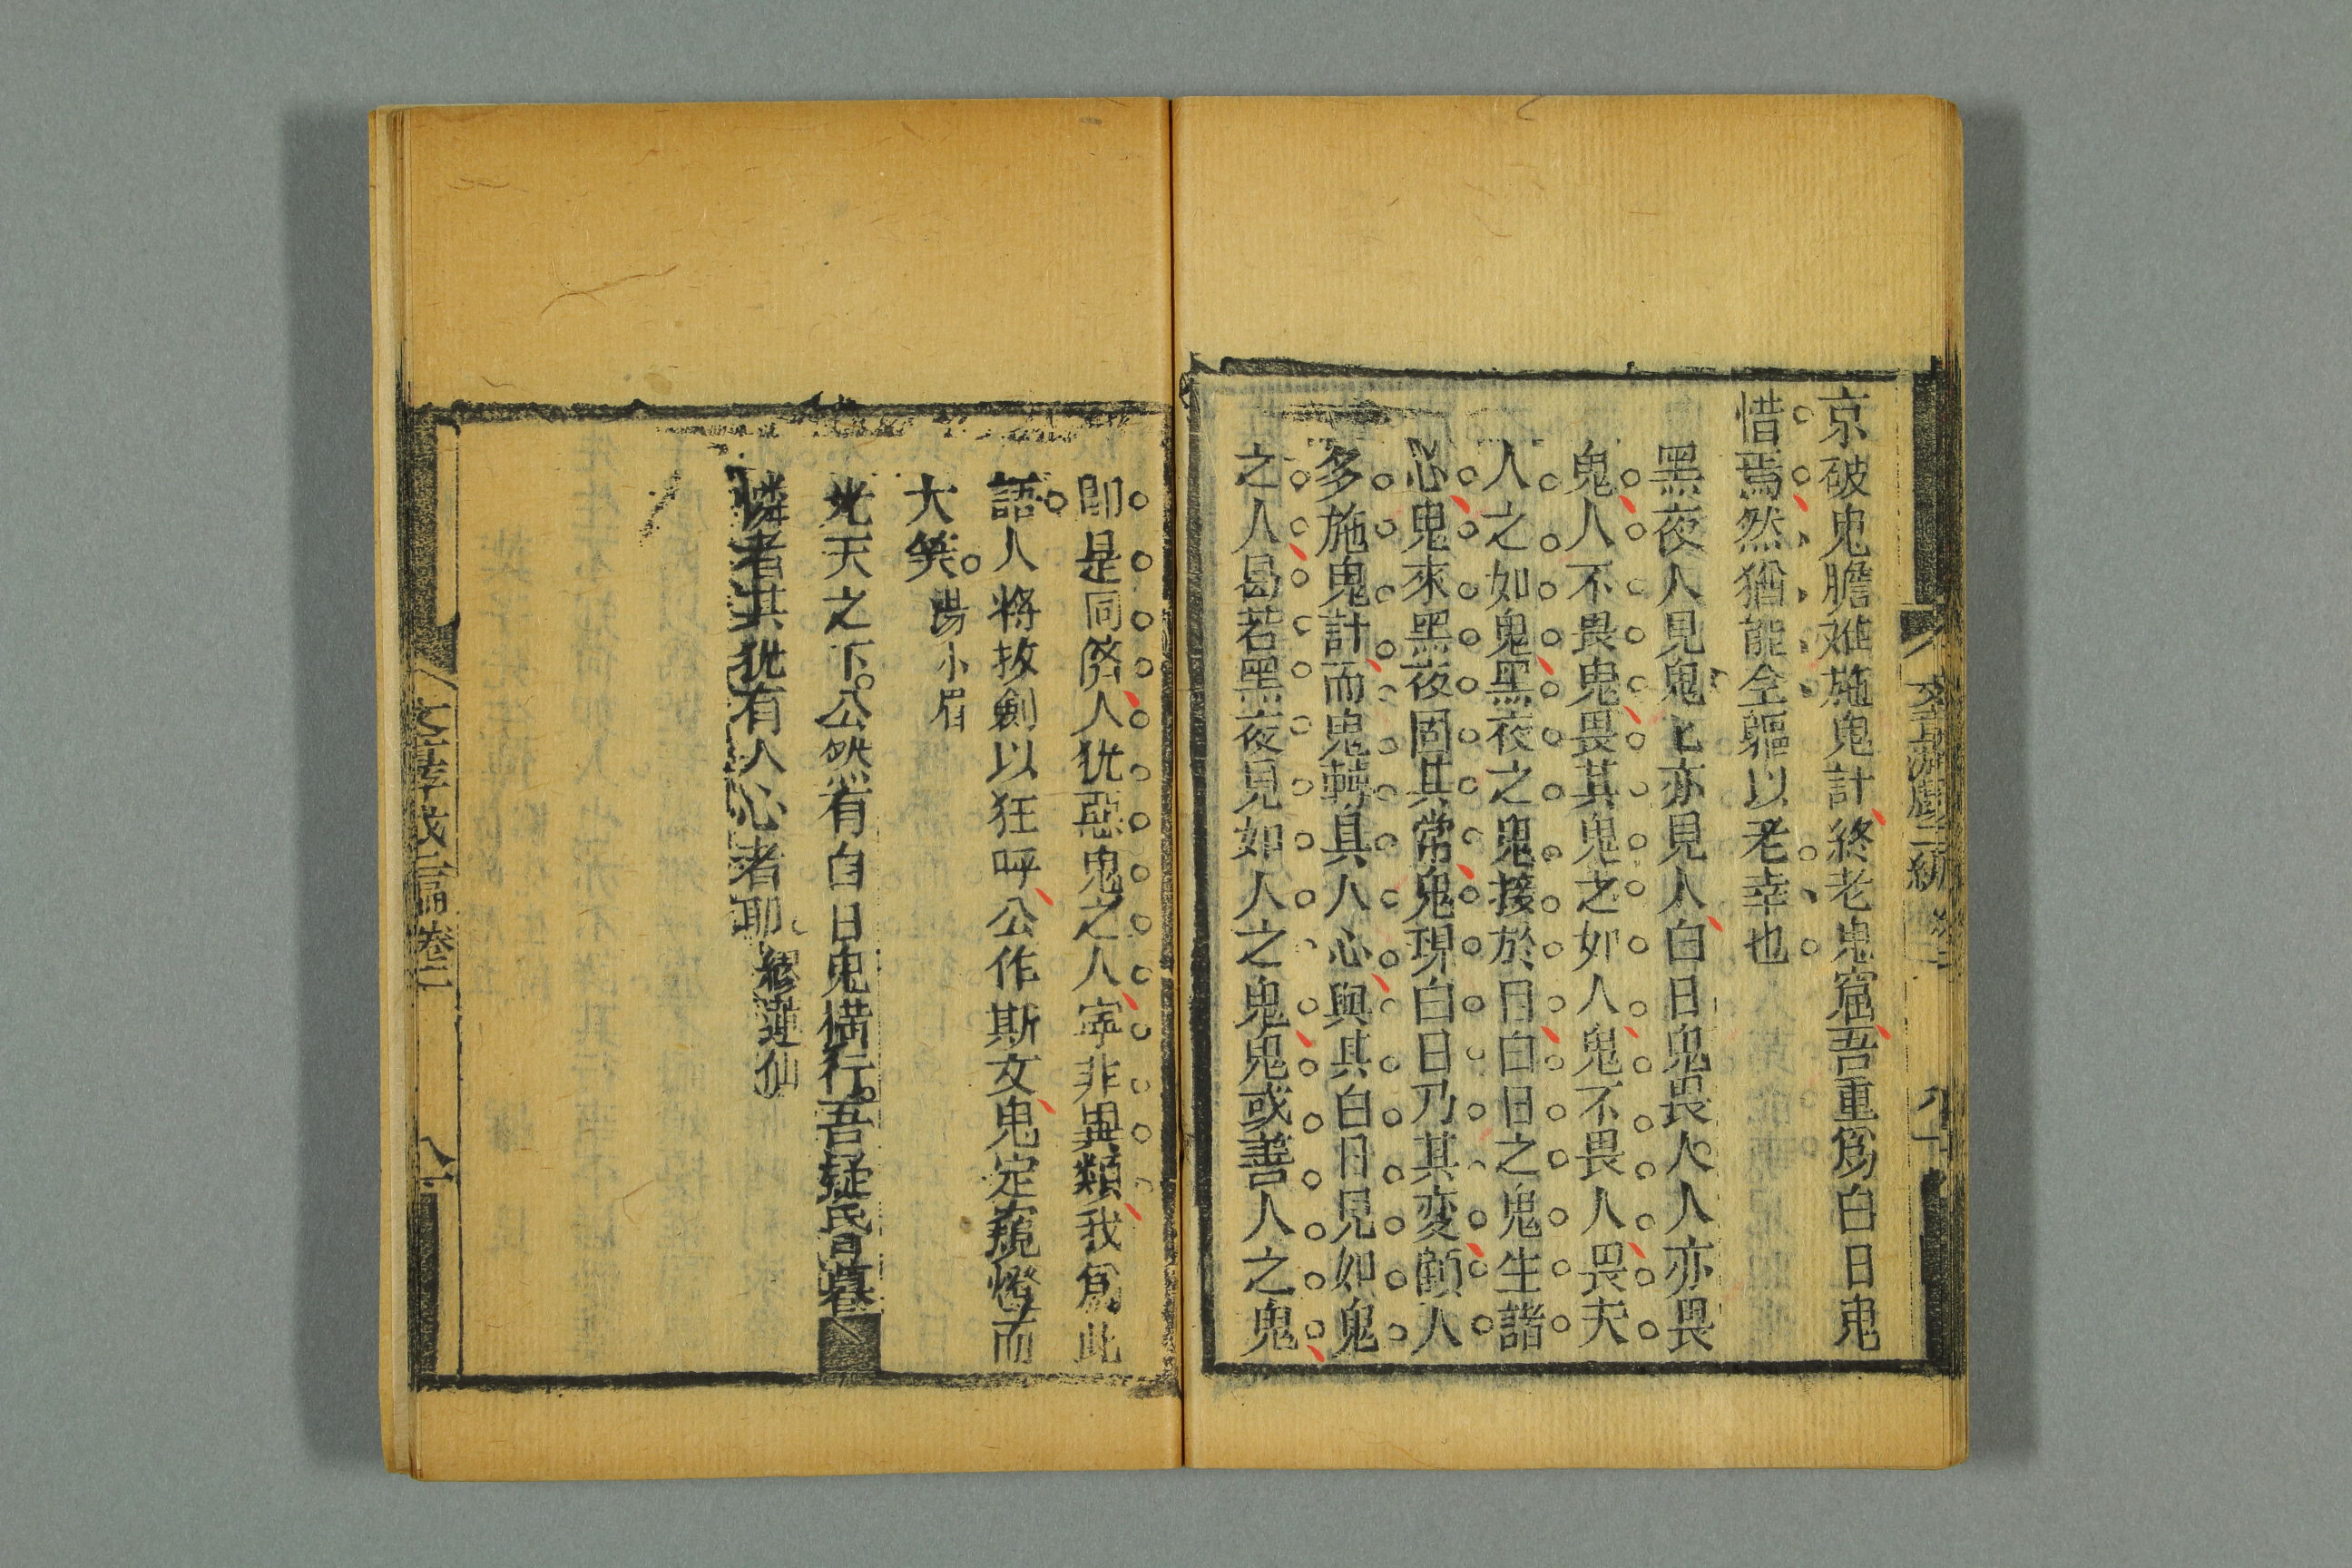 京破鬼膽难施鬼計終老鬼窟吾重爲白日鬼
惜焉然猶能全軀以老幸也
黑夜人見鬼匕亦見人白日鬼畏人人亦畏
鬼人不畏鬼鬼畏其鬼之如人鬼不畏人畏夫
人之如鬼黑夜之鬼接於目白日之鬼生諸
心鬼來黑夜固其常鬼現白日乃其変顧人
多施鬼計而鬼轉具人心與其白日見如鬼
之人曷若黑夜見如人之鬼鬼或善人之鬼
卽是同儕人犹惡鬼之人寧非異類我爲此
語人將拔劍以狂呼公作斯文鬼定窺燈而
大笑 湯小眉
光天之下公然有白日鬼橫行吾疑昏暮
憐者其犹有人心者耶 繆蓮仙
文章游戲三編 卷二 八十
文章游戲三編 卷二 八十一